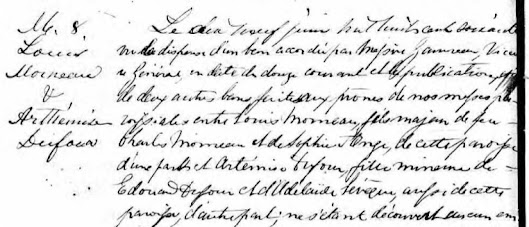 M. 8
Louis
Moineau
&
Arthémise
Dufour
Le dix neuf juin mil huit cent soixante
vu la dispense d'un ban accordée par Messire Vicai
re Général en date du douze courant et la publication
de deux autres bans faite aux prônes de nos messes pa
roissiales entre Louis Moineau, fils majeur de feu
Charles Moineau et de Sophie de cette paroisse
d'une part; et Artémise Dufour, fille mineure de
Edouard Dufour et d'Adelaide aussi de cette
paroisse, d'autre part; ne s'étant découvert aucun em